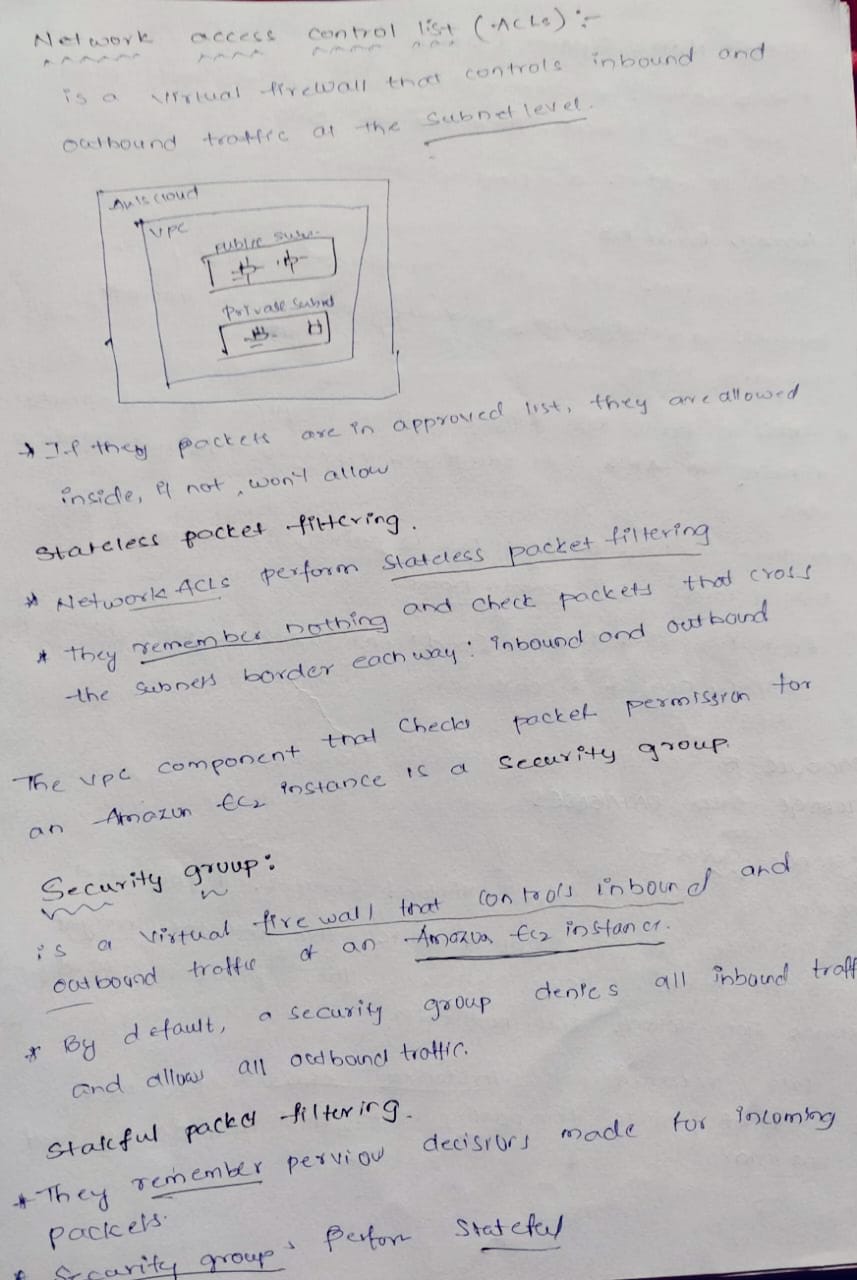 Network access control list (ACLs) :-
is a virtual firewall that controls inbound and
outbound traffic at the subnet level.
Aws cloud
VPC
public
private subnet
* If they packets are in approved list, they are allowed
inside, if not, won't allow
Stateless packet filtering.
* Network ACLs perform stateless packet filtering
* They remember nothing and check packets that cross
the subnets border each way: inbound and outbound
The VPC component that checks packet permission for
an Amazon EC2 instance is a security group.
Security group:
is a virtual firewall that controls inbound and
outbound traffic of an Amazon EC2 instance.
* By default, a security group denies all inbound traff
and allows all outbound traffic.
Stateful packet filtering.
* They remember perviou decisions made for incoming
packets.
* Security groups perform stateful